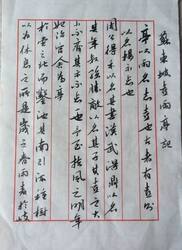 蘇東坡喜雨亭記
亭以雨名志喜也古者有喜則
以名物示不忘也
周公得禾以名其書漢武得鼎以名
其年叔孫勝敵以名其子其喜之大
小不齊其示不忘一也予至扶風之明年
始治官舍為亭
於堂之北而鑿池其南引流種樹
以為休息之所是歲之春雨麥於岐